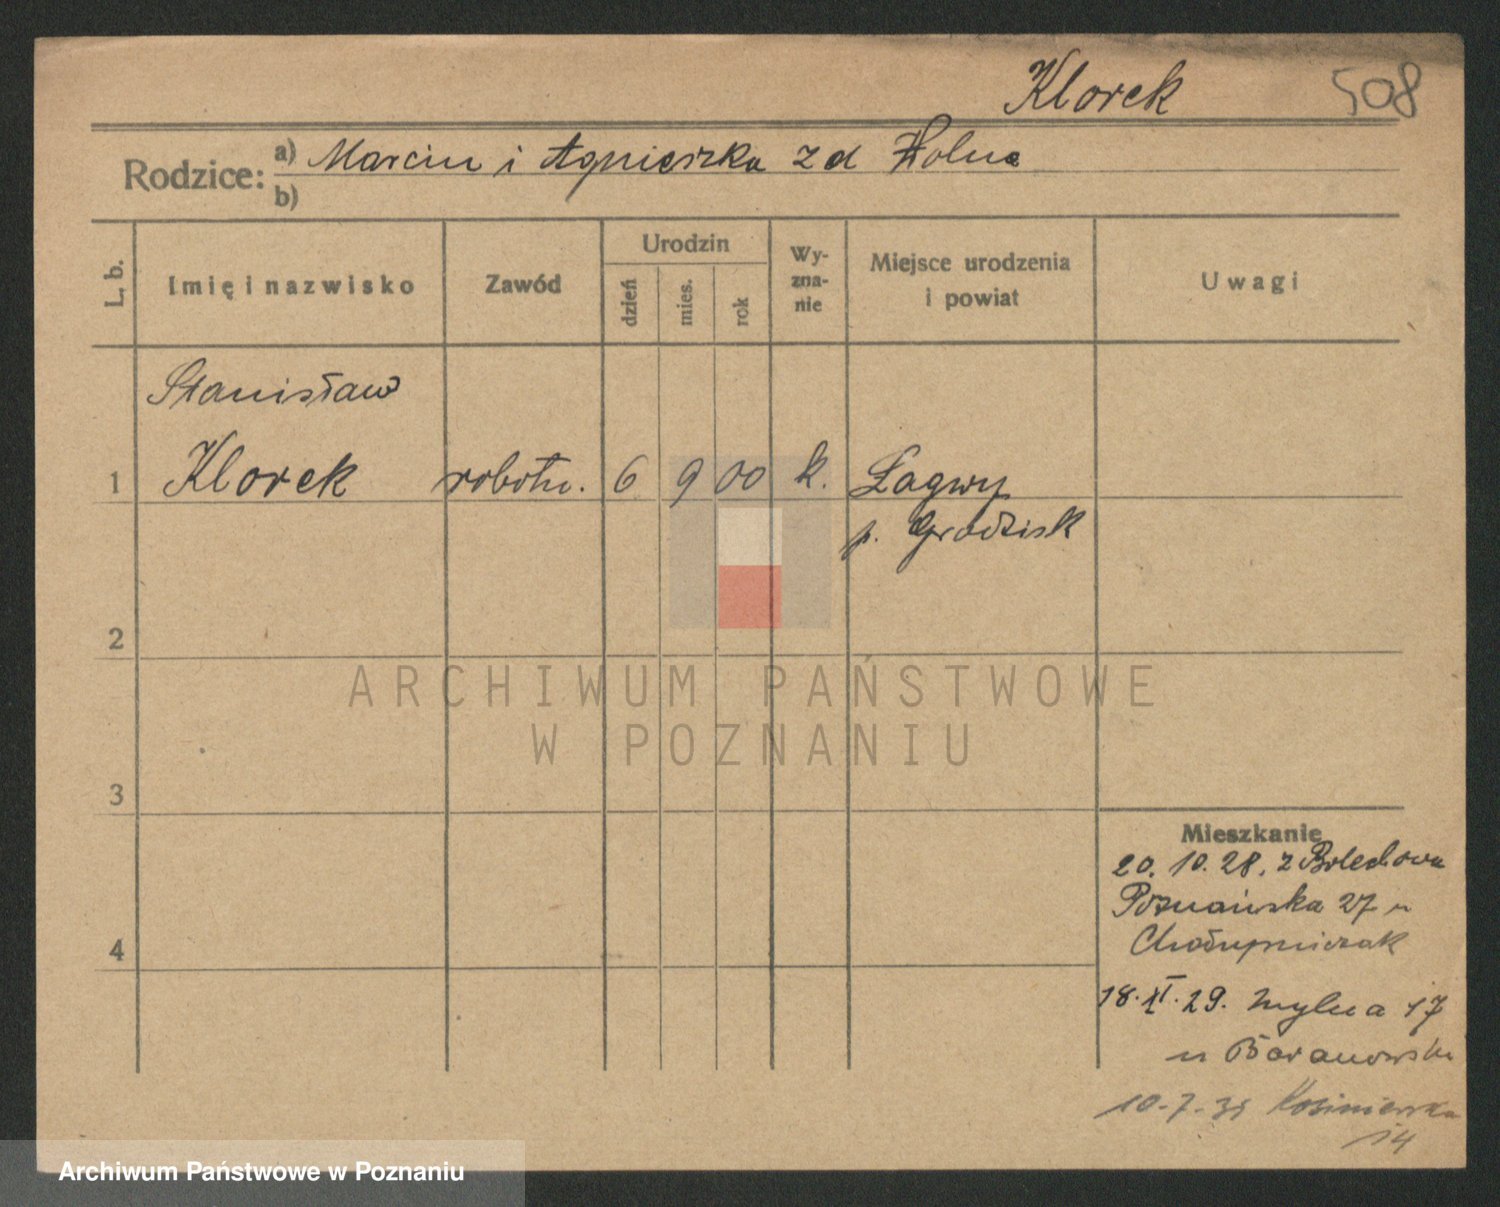 Klorek 508
Rodzice: a) Marcin i Agnieszka z d Wolna
b)
L. b. Imię i nazwisko Zawód Urodzin dzień mies. rok Wy-zna-nie Miejsce urodzenia i powiat Uwagi
Stanisław
1 Klorek robotn. 6 9 00 k. Łagwy
p. Grodzisk
2
ARCHIWUM PAŃSTWOWE
W POZNANIU
3
Mieszkanie
20. 10. 28. z Bolechowa
Poznańska 27 u
Chałupniczak
4
18. XI. 29. Mylna 17
u Baranowski
10-7-35
14
Archiwum Państwowe w Poznaniu